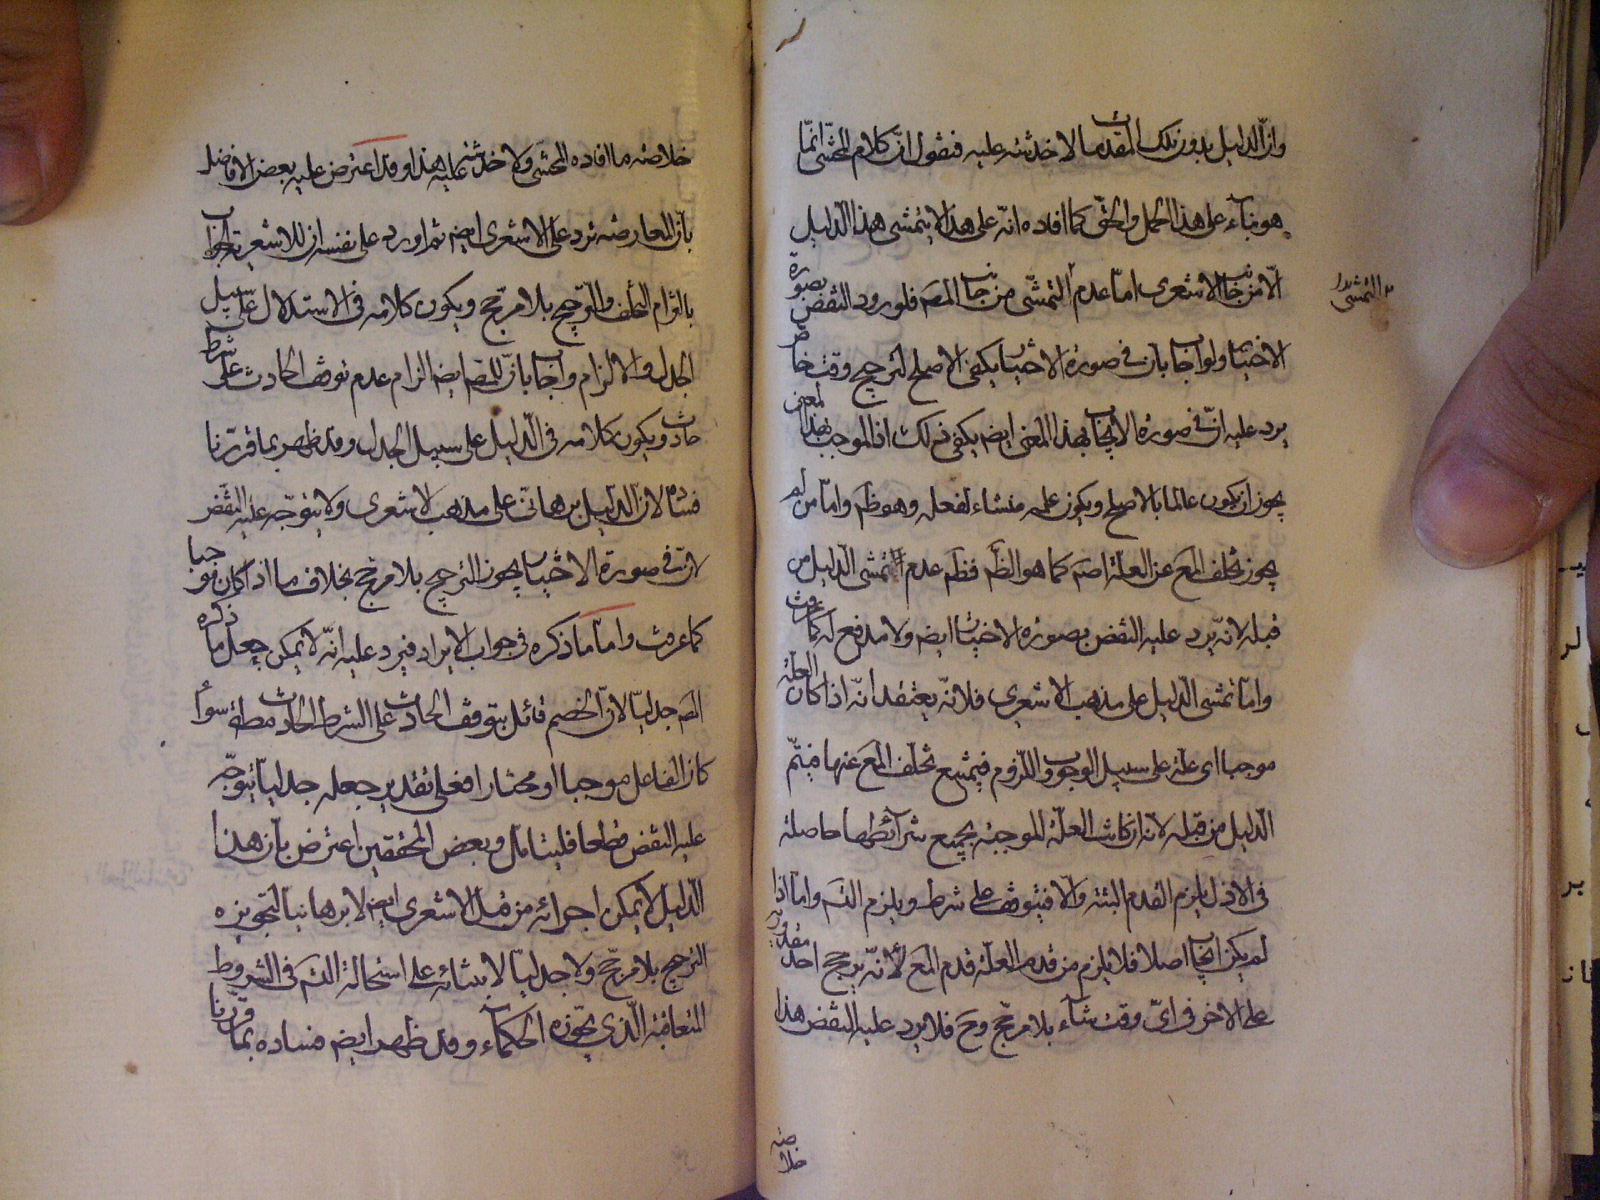 وان الدليل بدون تلك المقدمات لا خدشة عليه فنقول ان كلام المحشى انما
هو بناء على هذا الحمل والحق كما افاده انه على هذا لا يتمشى هذا الدليل
الا من جانب الاشعرى اما عدم التمشى من جانب المصم فلورود النقض بصورة
الاختيار ولو اجاب بان فى صورة الاختيار يكفى الاصلح لترجيح وقت خاص
يرد عليه ان فى صورة الايجاب بهذا المعنى ايضم يكفى ذلك اذ الموجب بهذا المعنى
يجوز ان يكون عالما بالاصلح ويكون علمه منشاء لفعله وهو ظم واما من لم
يجوز تخلف المع عن العلة اصم كما هو الظم فظم عدم تمشى الدليل من
قبله لانه يرد عليه النقض بصورة الاختيار ايضم ولا مدفع له كما عرفت
واما تمشى الدليل على مذهب الاشعرى فلانه يعتقد انه اذا كان العلة
موجبا اى علة على سبيل الوجوب واللزوم فيمتنع تخلف المع عنها فيتم
الدليل من قبله لانه ان كانت العلة الموجبة بجميع شرائطها حاصلة
فى الازل يلزم القدم البتة والا فيتوقف على شرط ويلزم التسم واما اذا
لم يكن ايجابا اصلا فلا يلزم من قدم العلة قدم المع لانه يرجح احد مقدوريه
على الاخر فى اى وقت شاء بلا مرجح وح فلا يرد عليه النقض هذا
خلاصة
التمشى
خلاصة ما افاده المحشى ولا خدشة عليه هذا وقد اعترض عليه بعض الافاضل
بان المعارضة ترد على الاشعرى ايضم ثم اورد على نفسه ان للاشعرى الجواب
بالتزام التخلف والترجيح بلا مرجح ويكون كلامه فى الاستدلال على سبيل
الجدل والالزام واجاب بان للمصم ايضم الزام عدم توقف الحادث على شرط
حادث ويكون كلامه فى الدليل على سبيل الجدل وقد ظهر بما قررنا
فساده لان الدليل برهانى على مذهب الاشعرى ولا يتوجه عليه النقض
لان فى صورة الاختيار يجوز الترجيح بلا مرجح بخلاف ما اذا كان موجبا
كما عرفت واما ما ذكره فى جواب الايراد فيرد عليه انه لا يمكن جعل ما ذكره
المصم جدليا لان الخصم قائل بتوقف الحادث على الشرط الحادث مطلقا سواء
كان الفاعل موجبا او مختارا فعلى تقدير جعله جدليا يتوجه
عليه النقض قطعا فليتامل وبعض المحققين اعترض بان هذا
الدليل لا يمكن اجرائه من قبل الاشعرى ايضم لا برهانيا لتجويزه
الترجيح بلا مرجح ولا جدليا لابتنائه على استحالة التسم فى الشروط
المتعاقبة الذى يجوزه الحكماء وقد ظهر ايضم فساده بما قررنا